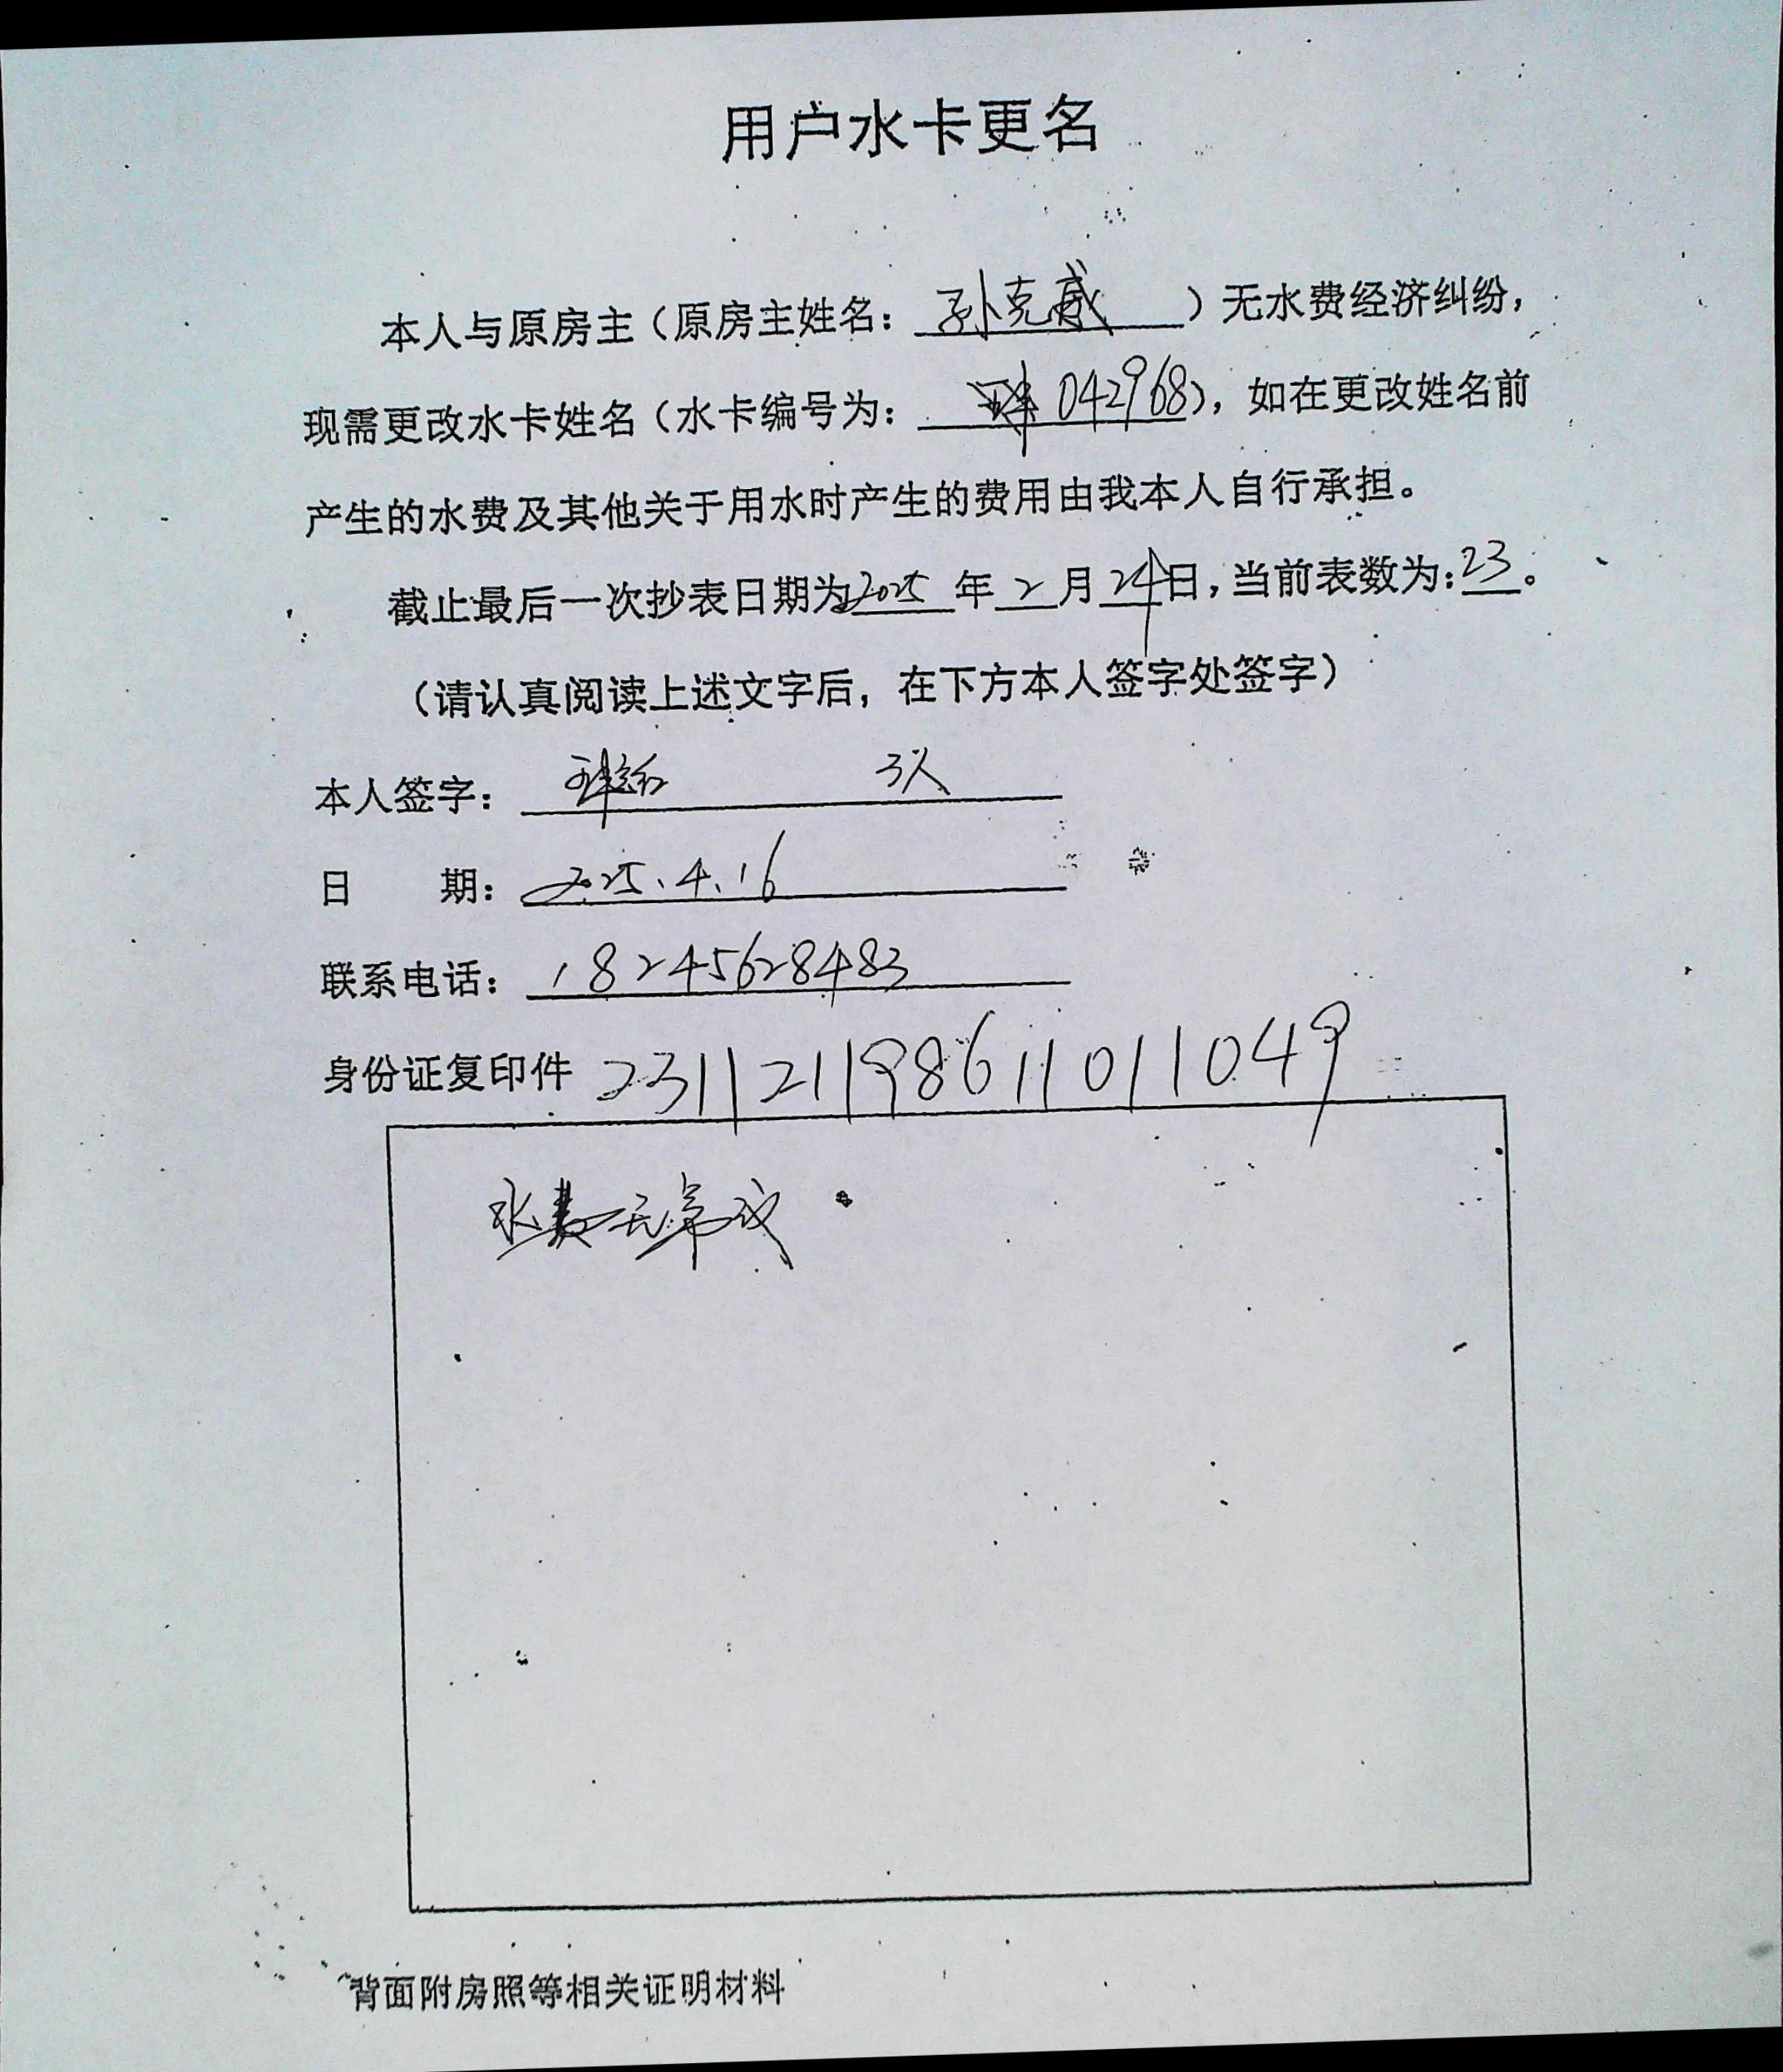 用户水卡更名
本人与原房主（原房主姓名：孙克威）无水费经济纠纷，
现需更改水卡姓名（水卡编号为：042968），如在更改姓名前
产生的水费及其他关于用水时产生的费用由我本人自行承担。
截止最后一次抄表日期为2025年2月24日，当前表数为：23。
（请认真阅读上述文字后，在下方本人签字处签字）
本人签字： 3人
日 期：2025.4.16
联系电话：18245628483
身份证复印件 231121198611011049
水表无异议
背面附房照等相关证明材料